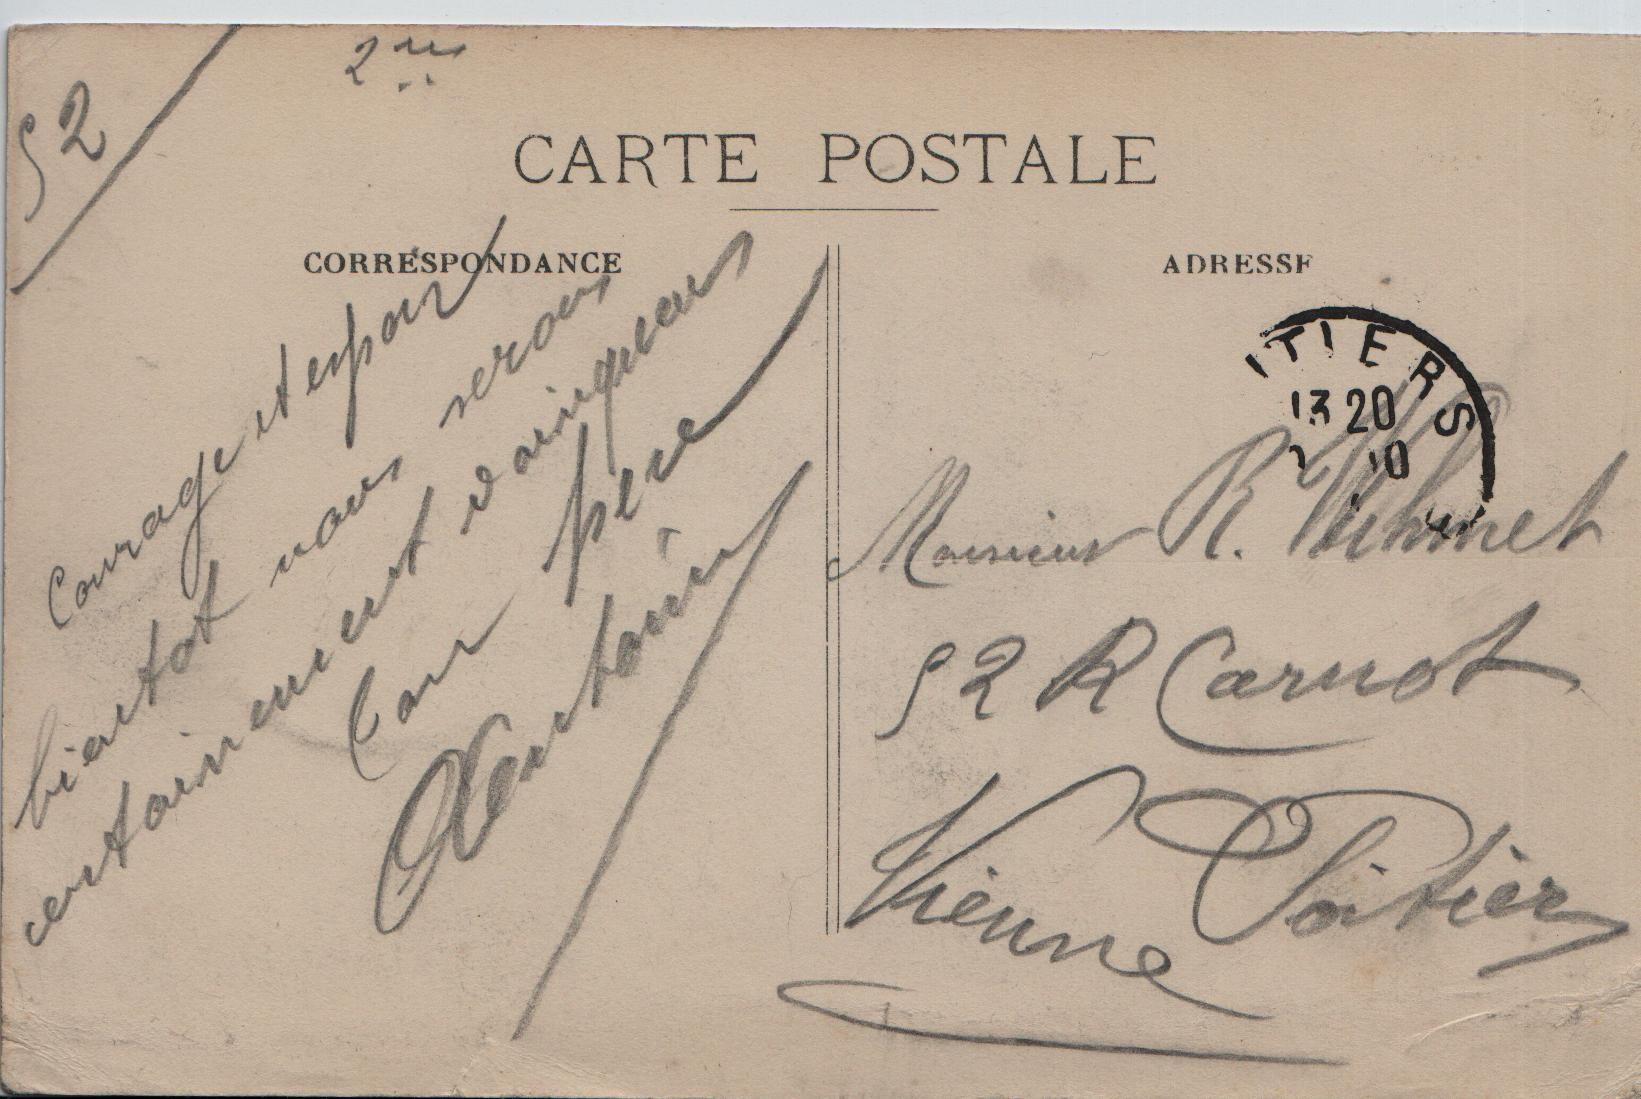 52
2me
CARTE POSTALE
CORRESPONDANCE
Courage et espoir
bientot nous serons
certainement vainqueurs
Ton père
Antonin
ADRESSE
ITIERS
13 20
10
Monsieur R.
52 R Carnot
Poitiers
Vienne